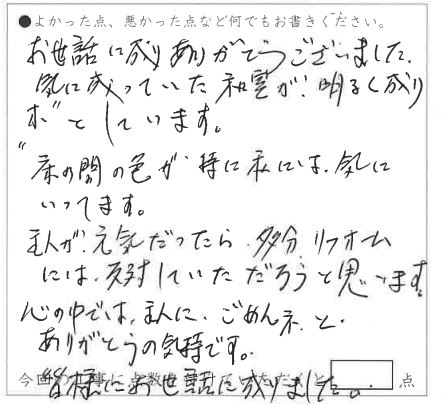 ●よかった点、悪かった点など何でもお書きください。
お世話に成りありがとうございました。
気に成っていた和室が、明るく成り
ホ"ッとしています。
床の間の色が特に私には、気に
いってます。
主人が、元気だったら、多分リフォーム
には、反対していただろうと思います。
心の中では、主人に、ごめんネ、と、
ありがとうの気持です。
皆様にお世話に成りました。
点